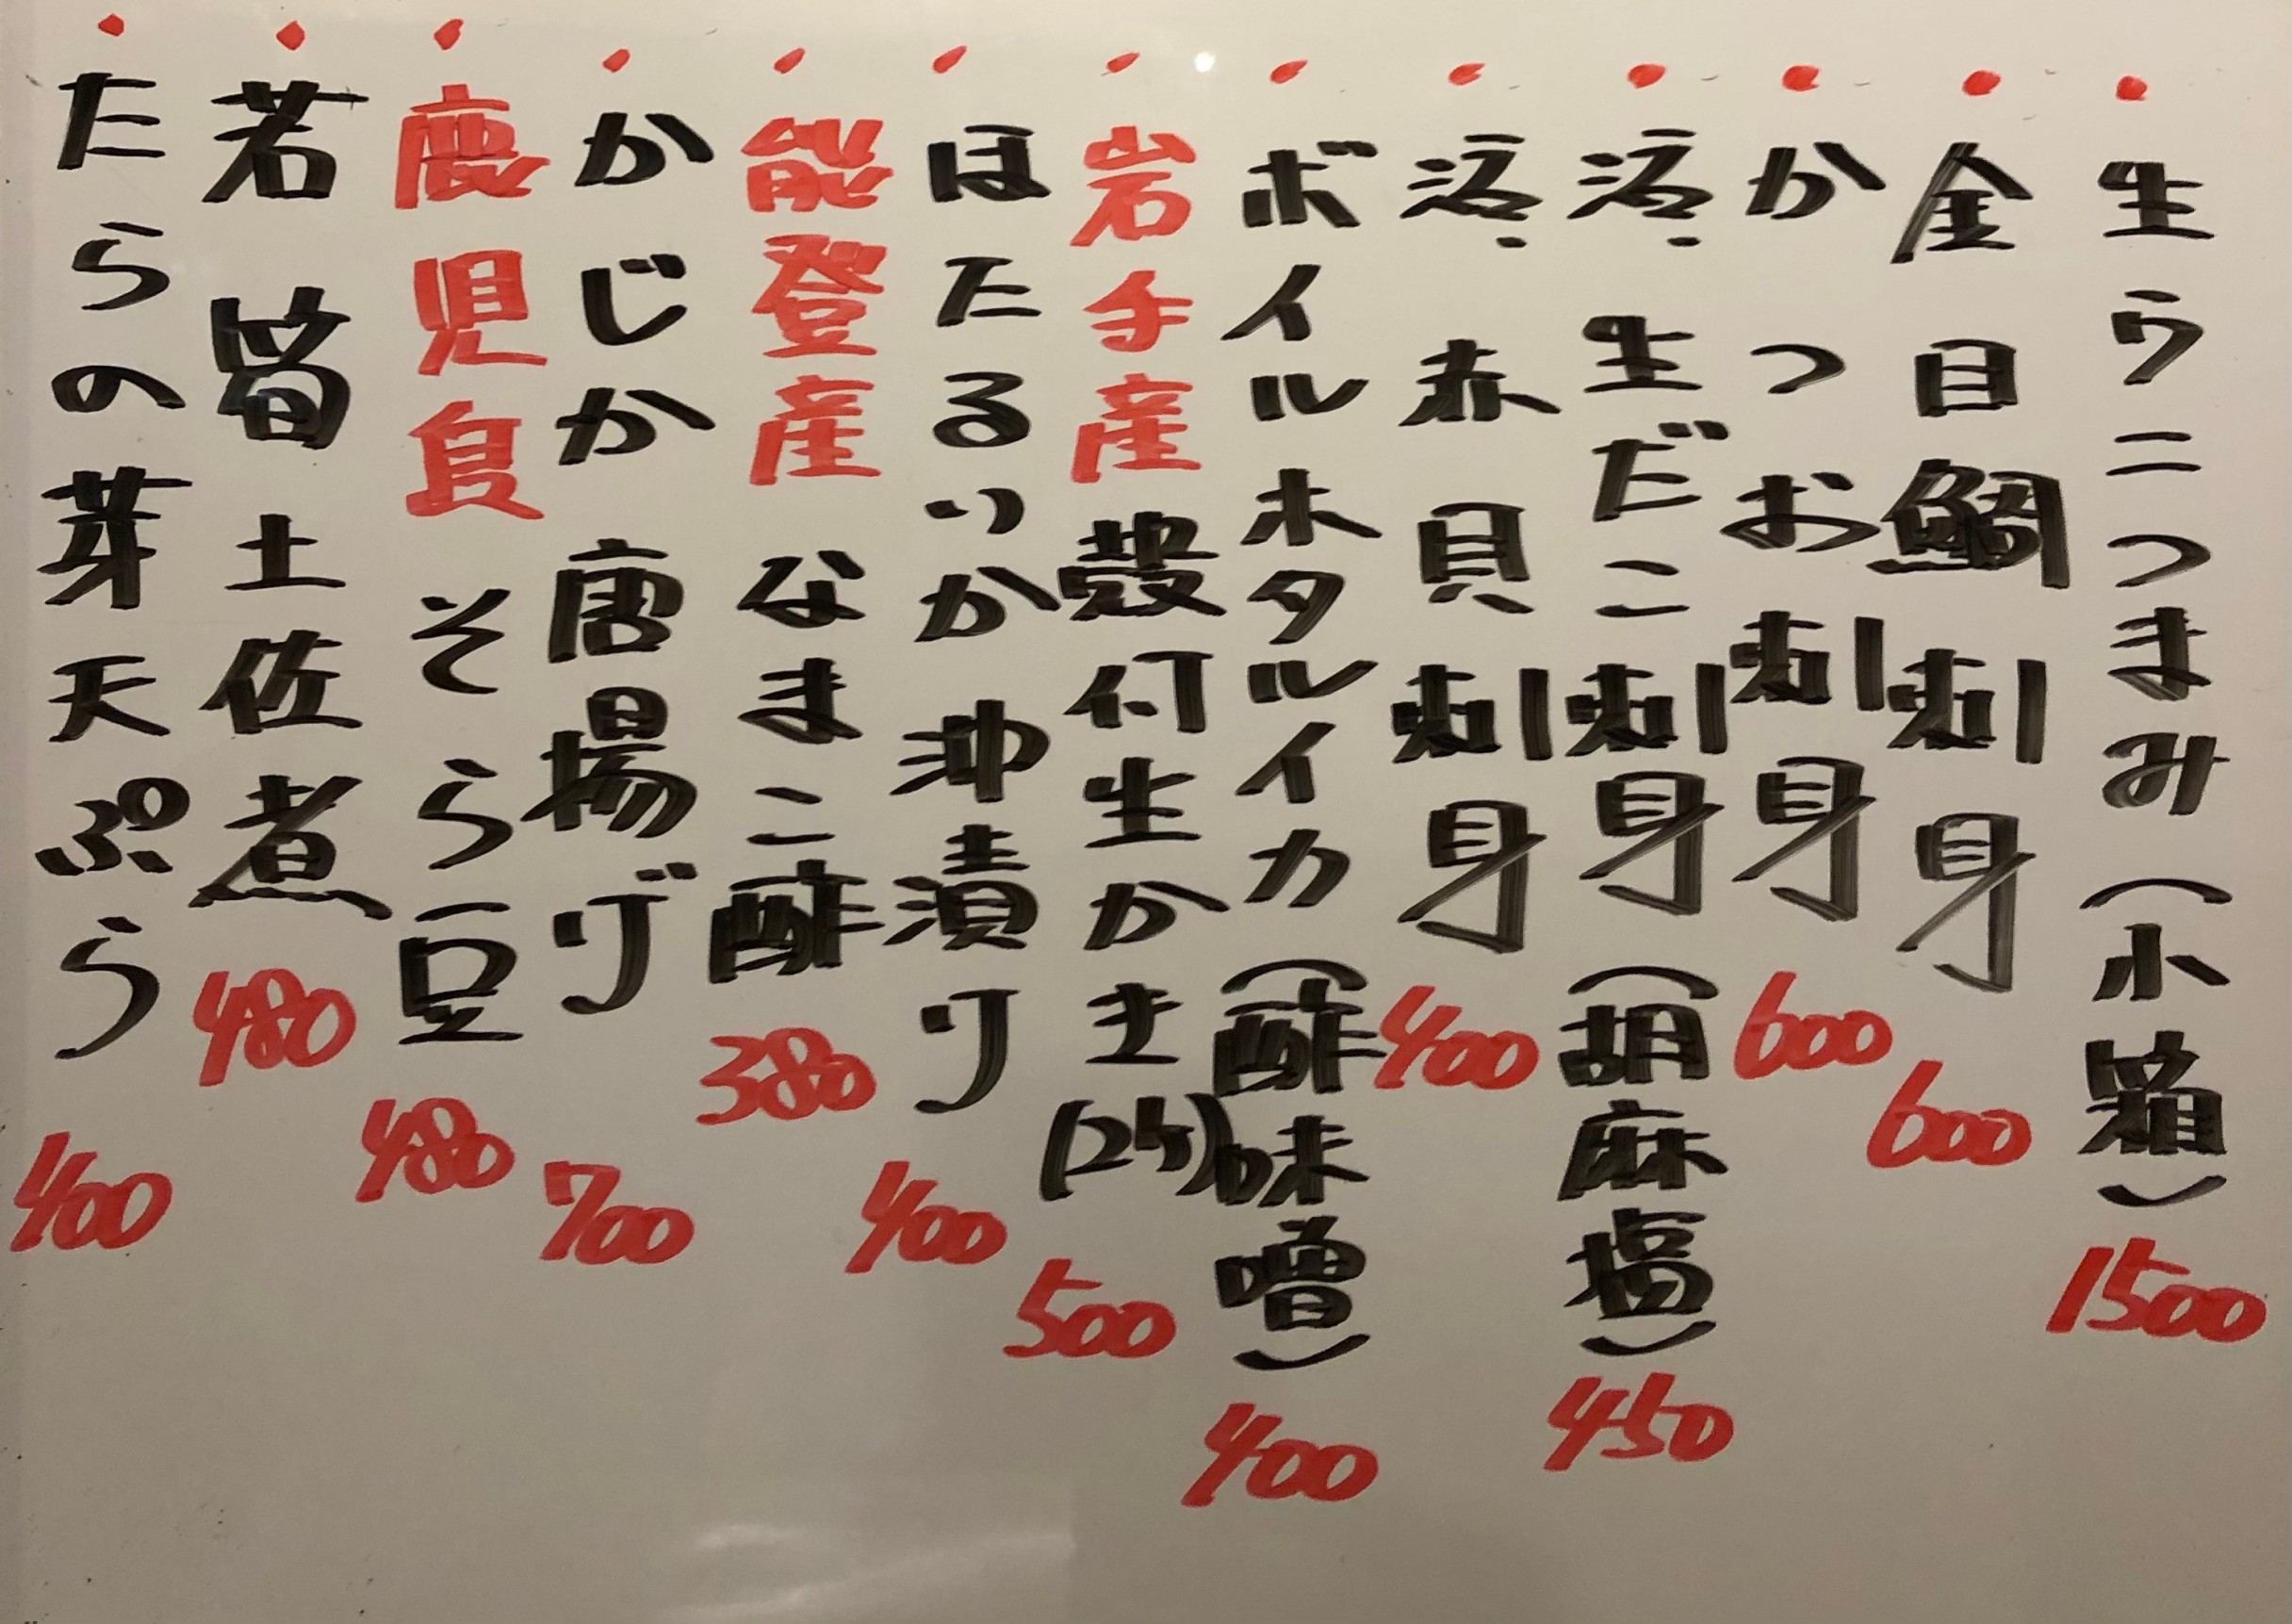 ・生ウニつまみ(小箱) 1500
・金目鯛刺身 600
・かつお刺身 600
・生だこ刺身(胡麻塩) 450
・赤貝刺身 400
・ボイルホタルイカ(酢味噌) 400
・岩手産殻付生かき(2ケ) 500
・ほたるいか沖漬け 400
・能登産なまこ酢 380
・かじか唐揚げ 700
・鹿児島そら豆 480
・若筍土佐煮 480
・たらの芽天ぷら 400